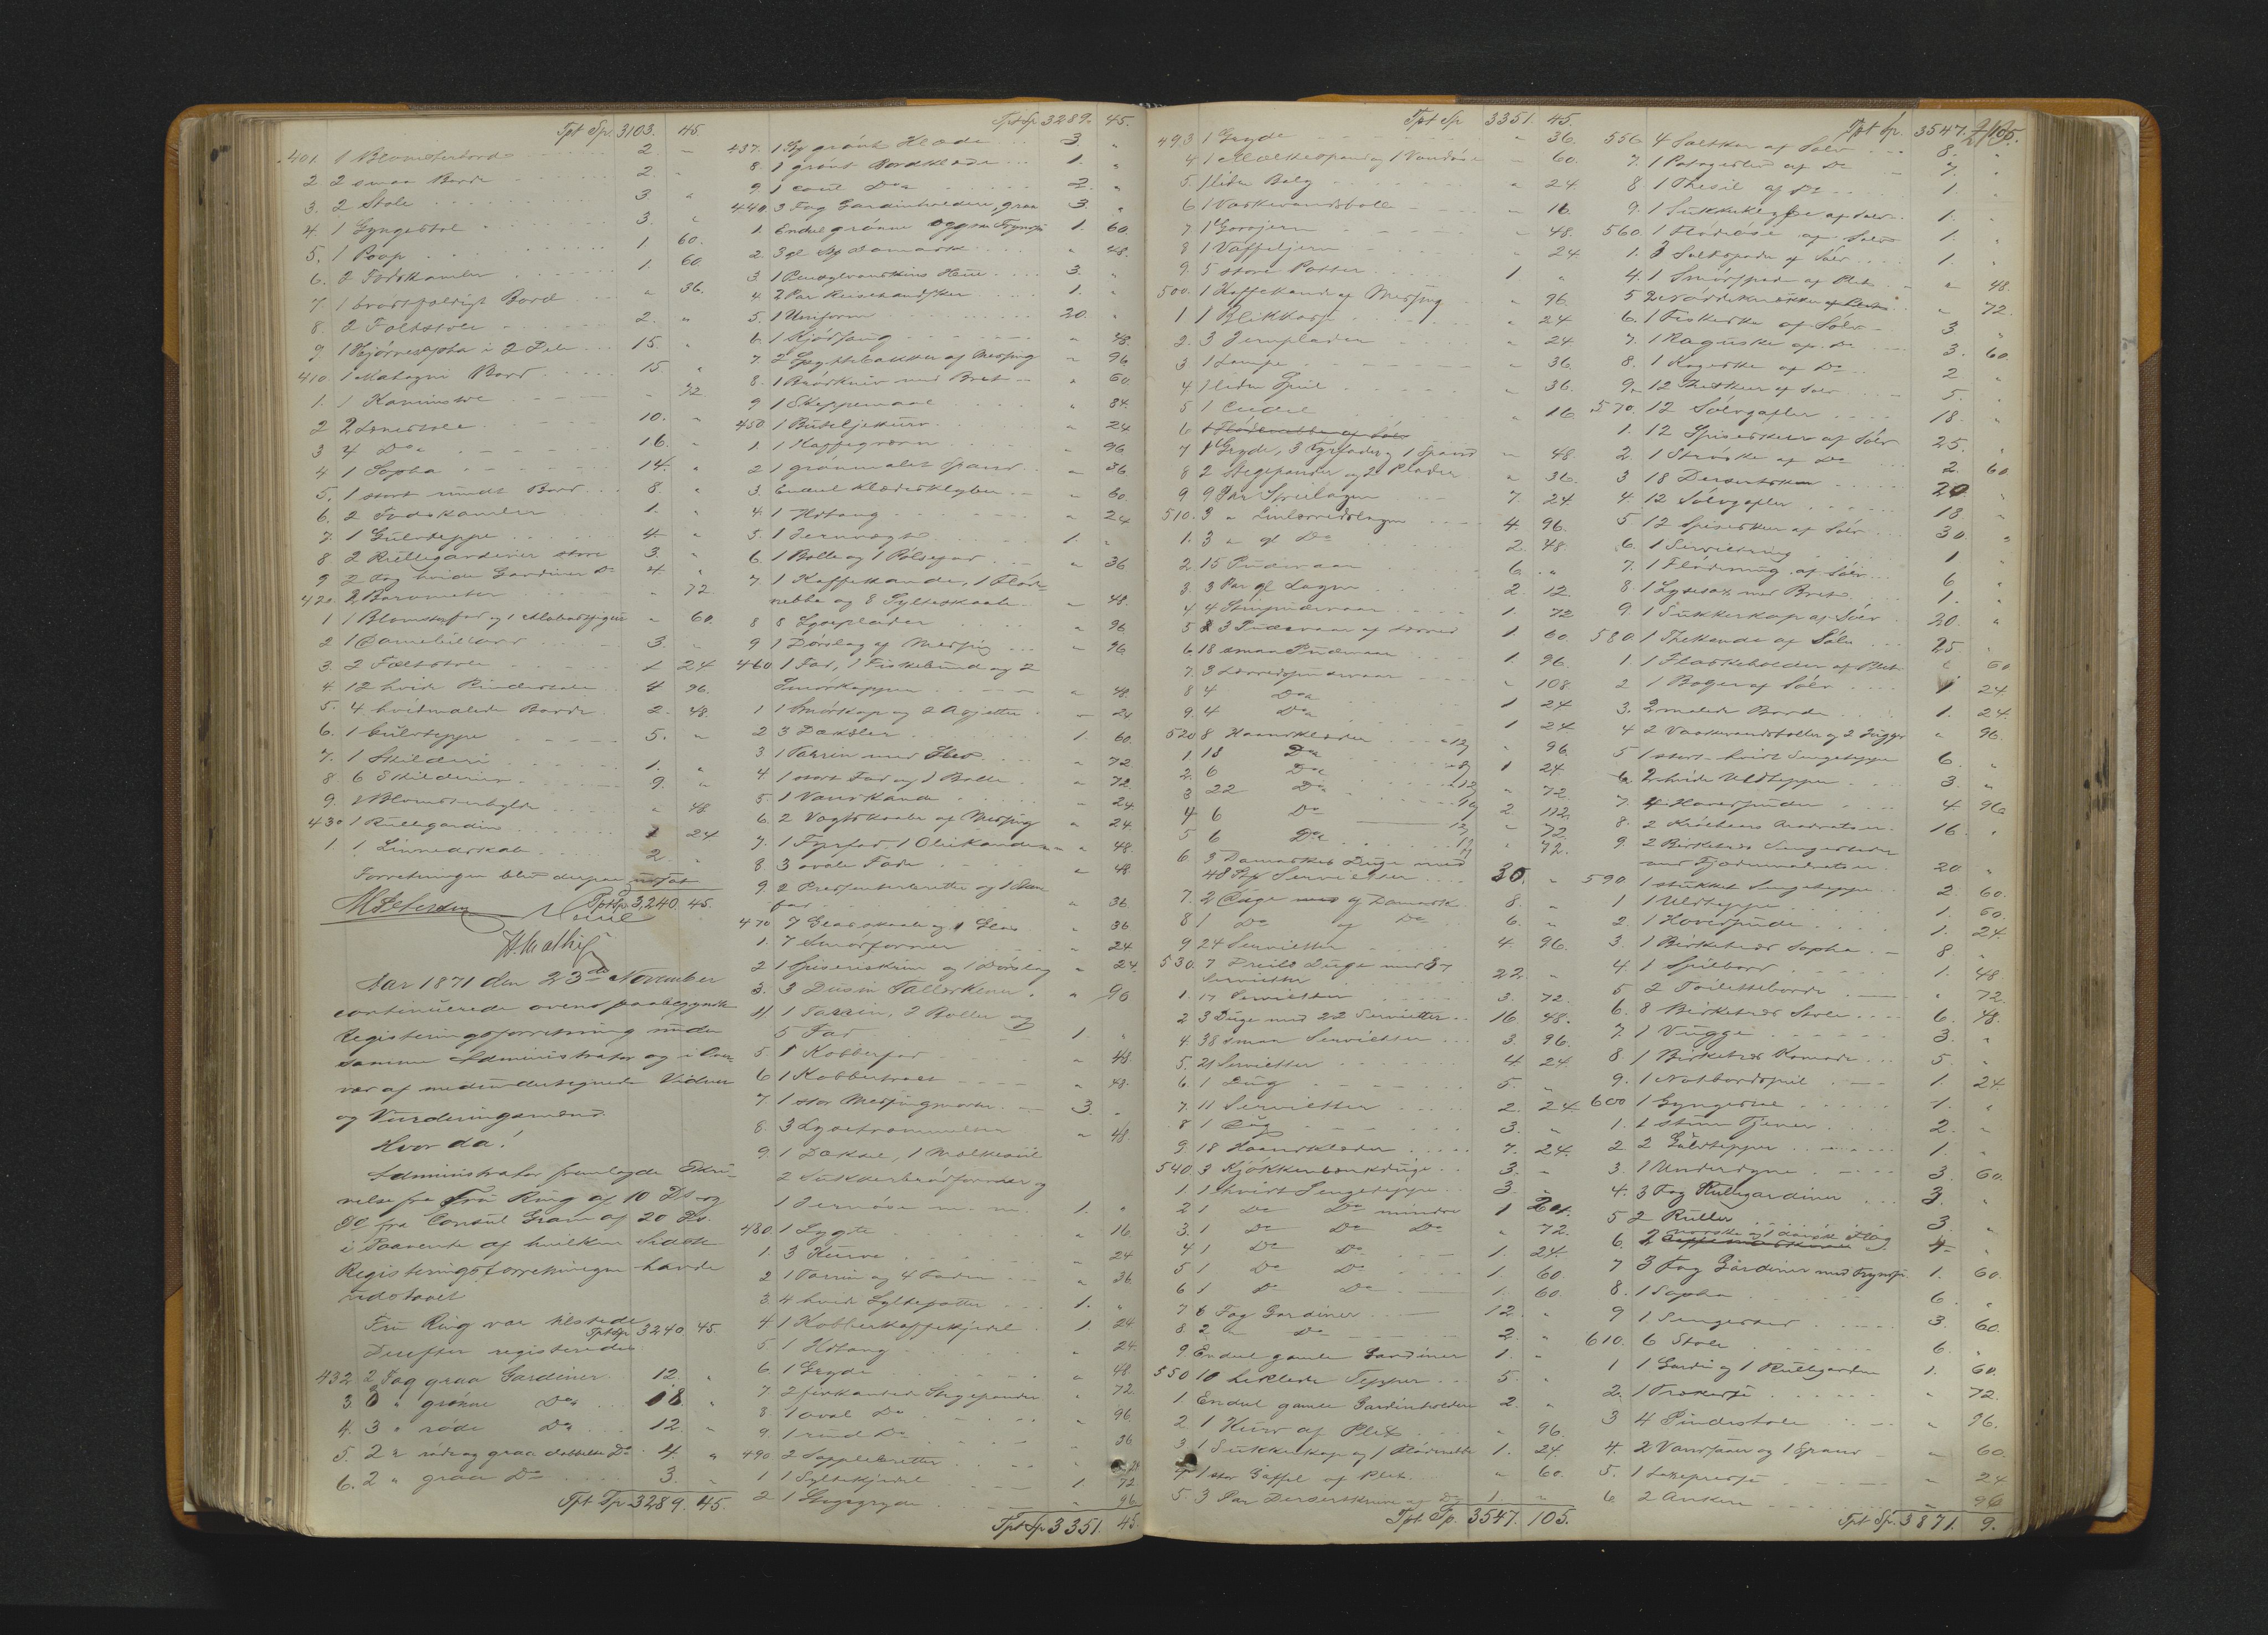 Tpt Sp. 3103. 45.
401. 1 Blomsterbord 2. -
2. 2 smaa Borde 2. "
3. 2 Stole 3. "
4. 1 Gyngestol 3. "
5. 1 1 60.
6. 2 Fodskamler 1. 60
7 1 Bord " 36.
8. 2 Feltstole 2. "
9 1 Hjørnesopha i 2 Dele 15. "
410. 1 Mahogni Bord 15. "
1. 1 Kaminstol - 72
2 2 Lænestole 10. "
3 4 Do 16. "
4 1 Sopha 14. "
5. 1 stort rundt Bord 8. "
6. 2 Fodskamler 1. "
7. 1 Gulvteppe 4. "
8 2 Rullegardiner store 3. "
9 2 Fag hvide Gardiner Do 4. "
420. 2 Barometer " 72
1 1 Blomsterfad og 1 " 60.
2 1 Damebillard 3. "
3. 2 Feltstole 1 24
4. 12 hvide Pindestole 4 96.
5. 4 hvidmalede Borde 2. 48.
6. 1 Gulvteppe 5. "
7. 1 Skilderi 1. "
8. 6 Skilderier 9. "
9. 1 Blomsterhylde " 48
430 1 Rullegardin 1 24
1. 1 Linnedskab 2. "
Forretningen blev derpaa udsat
Tpt Sp. 3240. 45.
M Petersen
Aar 1871 den 23de November
continuerede ovenf paabegyndte
Registreringsforretning under
samme Administrator og i Over-
vær af medundertegnede Vidner
og Vurderingsmænd.
Hvor da!
Administrator fremlagde Skri-
velse fra Fru Ring af 10 Ds og
Do fra Consul Gram af 20 Ds.
i Paavente af hvilken sidste
Registreringsforretningen havde
udstaaet
Fru Ring var tilstede
Tpt Sp 3240. 45.
Derefter registreredes
432 2 Fag graa Gardiner 12. "
3. 6 " grønne Do 18. "
4. 3 " røde Do 12. "
5. 2 " røde og graa dobbelte Do 4. "
6. 2 " graa Do 3. "
Tpt Sp 3289. 45.
Tpt Sp 3289. 45.
437. 1 St grønt Klæde 3. "
8. 1 grønt Bordklæde 1. "
9 1 Do 2. "
440. 3 Fag Gardinholdere, graa 3. "
1. Endeel grønne Frynser 1. 60
2. 3 gl St Damask " 48.
3. 1 3. "
4. 2 Par Reisehandsker 1. "
5. 1 Uniform 20. "
6. 1 Kjødsaug " 48.
7. 2 af Messing " 96
8. 1 Brødkniv med Bret " 60.
9 1 Skeppemaal " 84.
450 1 Bouteljekurv " 24
1. 1 Kaffeqværn " 96
2 1 grønmalet Spand " 36
3. Endeel Klædesklyber " 60.
4. 1 Ildtang " 24
5. 1 Jernvægt 1. "
6. 1 Bolle og 1 Pølsefad " 36
7. 1 Kaffekande, 1 Fløde-
nebbe og 8 Sylteskaale " 48.
8 8 Lyseplader " 96
9 1 Dørslag af Messing " 96
460 1 Fad, 1 Fiskebund og 2
Smørkopper " 48.
1 1 Smørkop og 2 Asjetter " 24
2 3 Dæksler 1. 60.
3 1 Terrin med " 72
4. 1 stort Fad og 1 Bolle " 72.
5 1 Vandkande " 24
6. 2 Vagtskaale af Messing " 24
7. 1 Fyrfad, 1 Oliekande " 48.
8. 3 ovale Fade " 48
9. 2 Presenterbretter og 1
fad " 36
470 7 Glasskaale og 1 Glas " 36
1. 7 Smørformer " 24
2 1 Spiseskrin og 1 Dørslag " 24.
3. 3 Dusin Tallerkener " 96
4 1 Terrin, 2 Boller og
5 Fad 1. "
5. 1 Kobberfad " 48
6 1 Kobbertragt " 48.
7. 1 stor Messingmorter 3. "
8. 3 Lysetrommeler " 48.
9. 1 Dæksel, 1 Melkesiil
2 Sukkerbrødformer og
1 Jernøse m. m. 1. "
480 1 Lygte " 16
1. 3 Kurve " 24
2 1 Terrin og 4 Fade " 36
3. 4 hvide Syltepotter 1. "
4 1 Kobberkaffekjedel 1. 24
5 1 Ildtang " 24.
6 1 Gryde " 48
7 2 firkantede Stegepander " 72.
8. 1 oval Do " 96.
9. 1 rund Do " 36
490 2 Sappebretter " 24
1 1 Syltekjedel 1. 72
2 1 Stegegryde " 96
Tpt Sp 3351. 45
Tpt Sp 3351. 45.
493 1 Gryde " 36.
4 1 Melkespand og 1 Vandøse " 60.
5. 1 liden Balg " 24
6 1 Vaskevandsbolle " 16
7 1 Gorojern " 48.
8 1 Vaffeljern " 24
9. 5 store Potter 1. "
500. 1 Kaffekande af Messing " 96.
1 1 " 24
2. 3 Jernplader " 24
3 1 Lampe " 36
4 1 liden Speil " 36.
5 1 Endeel " 16
6 1 Flødenebbe af Sølv
7 1 Gryde, 3 Fyrfade og 1 Spand " 48.
8 2 Stegepander og 2 Plader " 36.
9 9 Par Strielagen 7. 24.
510. 3 " Linlærredslagen 4. 96.
1. 3 " gl Do 2 48
2. 15 Pudevaar 6. "
3. 3 Par gl Lagen 2. 12
4 4 Pudevaar 1. 72
5 3 Pudevaar af Lærred 1. 60
6 18 smaa Pudevaar 1. 96.
7. 3 Lærredspudevaar " 108.
8 4 Do 1 24
9. 4 Do 1 24
520 8 Haandklæder " 96
1. 13 Do 1 24
2. 6 Do " 72
3 22 Do 2. 112.
4 6 Do " 72
5 6 Do " 72.
6. 5 Damaskes Duge med
48 Servietter 30. "
7. 2 Duge af Damask 8. "
8 1 Do af Do 6. "
9 24 Servietter 4. 96.
530. 7 Dreils Duge med 87
Servietter 22. "
1. 17 Servietter 3. 72.
2 3 Duge med 22 Servietter 16 48.
4. 38 smaa Servietter 3. 96.
5. 21 Servietter 4 24
6. 1 Dug 5. "
7. 11 Servietter 2. 24
8 1 Dug 3. "
9. 18 Haandklæder 7. 24.
540 3 Kjøkkenbænkduge 3. "
1. 1 hvidt Sengeteppe 3. "
2 1 Do Do mindre 1
3. 1 Do Do Do " 72.
4 1 Do Do 1. 24.
5 1 Do Do 1. 60.
6 1 Do Do 1. 60.
7. 6 Fag Gardiner 12. "
8. 2 " Do 2. "
9 Endeel gamle Gardiner 1. "
550 10 Tepper 5. "
1. Endeel gamle Gardinholdere 2. "
2 1 Kurv af Plet " 96.
3 1 Sukkerkop og 1 Flødenebbe 1. 24.
4 1 stor Gaffel af Plet " 60.
5. 3 Par Dessertknive af Do 1. "
Tpt Sp. 3547. 105.
Tpt Sp. 3547. 105.
556 4 Saltkar af Sølv 8. "
7. 1 Potageske af Do 7. "
8 1 Thesil af Do 1. "
9. 1 Sukkerklype af Sølv 1. "
560. 1 Flødeøse af Sølv 1. "
1. 3 Saltspader af Sølv 1. "
4. 1 Smørspade af Plet " 48.
5 2 Nøddeknækker af Plet " 72.
6. 1 Fiskeske af Sølv 3 "
7. 1 Raguske af Do 3. 60
8. 1 Kageske af Do 2 "
9. 12 Theskeer af Sølv 5. "
570. 12 Sølvgafler 18. "
1. 12 Spiseskeer af Sølv 25. "
2. 1 Strøske af Do 2. 60
3 18 Dessertskeer 20 "
4. 12 Sølvgafler 18 "
5 12 Spiseskeer af Sølv 30. "
6. 1 Servietring 1 "
7. 1 Flødemug af Sølv 6 "
8 1 Lysesax med Bret 1. "
9. 1 Sukkerkop af Sølv 20. "
580. 1 Thekande af Sølv 25 "
1. 1 Flaskeholder af Plet " 60
2 1 Bæger af Sølv 1 24
3. 2 malede Borde 1. 24.
4 2 Vaskevandsboller og 2 Mugger " 96.
5 1 stort hvidt Sengeteppe 6. "
6. 2 hvide Uldtepper 3. "
7. 4 Hovedpuder 4. 96
8. 2 Krølhaars Madratser 16 "
9. 2 Birketræs Sengesteder
med Fjædermadratser 20. "
590 1 stukket Sengeteppe 2. 60.
1 1 Uldteppe 1. 60.
2. 1 Hovedpude 1. 24.
3. 1 Birketræs Sopha 8 "
4. 1 Spilbord 1. 48.
5 2 Toiletteborde " 72.
6. 8 Birketræs Stole 6. 48.
7. 1 Vugge 3. "
8. 1 Birketræs Komode 5. "
9. 1 Natbordspeil 1. 24
600 1 Gyngestol 1. "
1. 1 stum Tjener 2. "
2 2 Gulvtepper 1. "
3. 1 Underdyne 3. 60.
4. 3 Fag Rullegardiner 3. "
5 2 Ruller 3. "
6. 2 norske og 1 dansk Flag 4. "
7 3 Fag Gardiner med Frynser 1. 60.
8. 1 Sopha 6. "
9 1 Sengested 3. 60.
610. 6 Stole 6. "
1 1 Gardin og 1 Rullegardin 1. 60.
2. 1 " 72.
3 4 Pindestole " 96.
4. 2 Vandspand og 1 Spand " 60.
5. 1 " 24
6 2 Ankere " 96
Tpt Sp. 3871. 9.